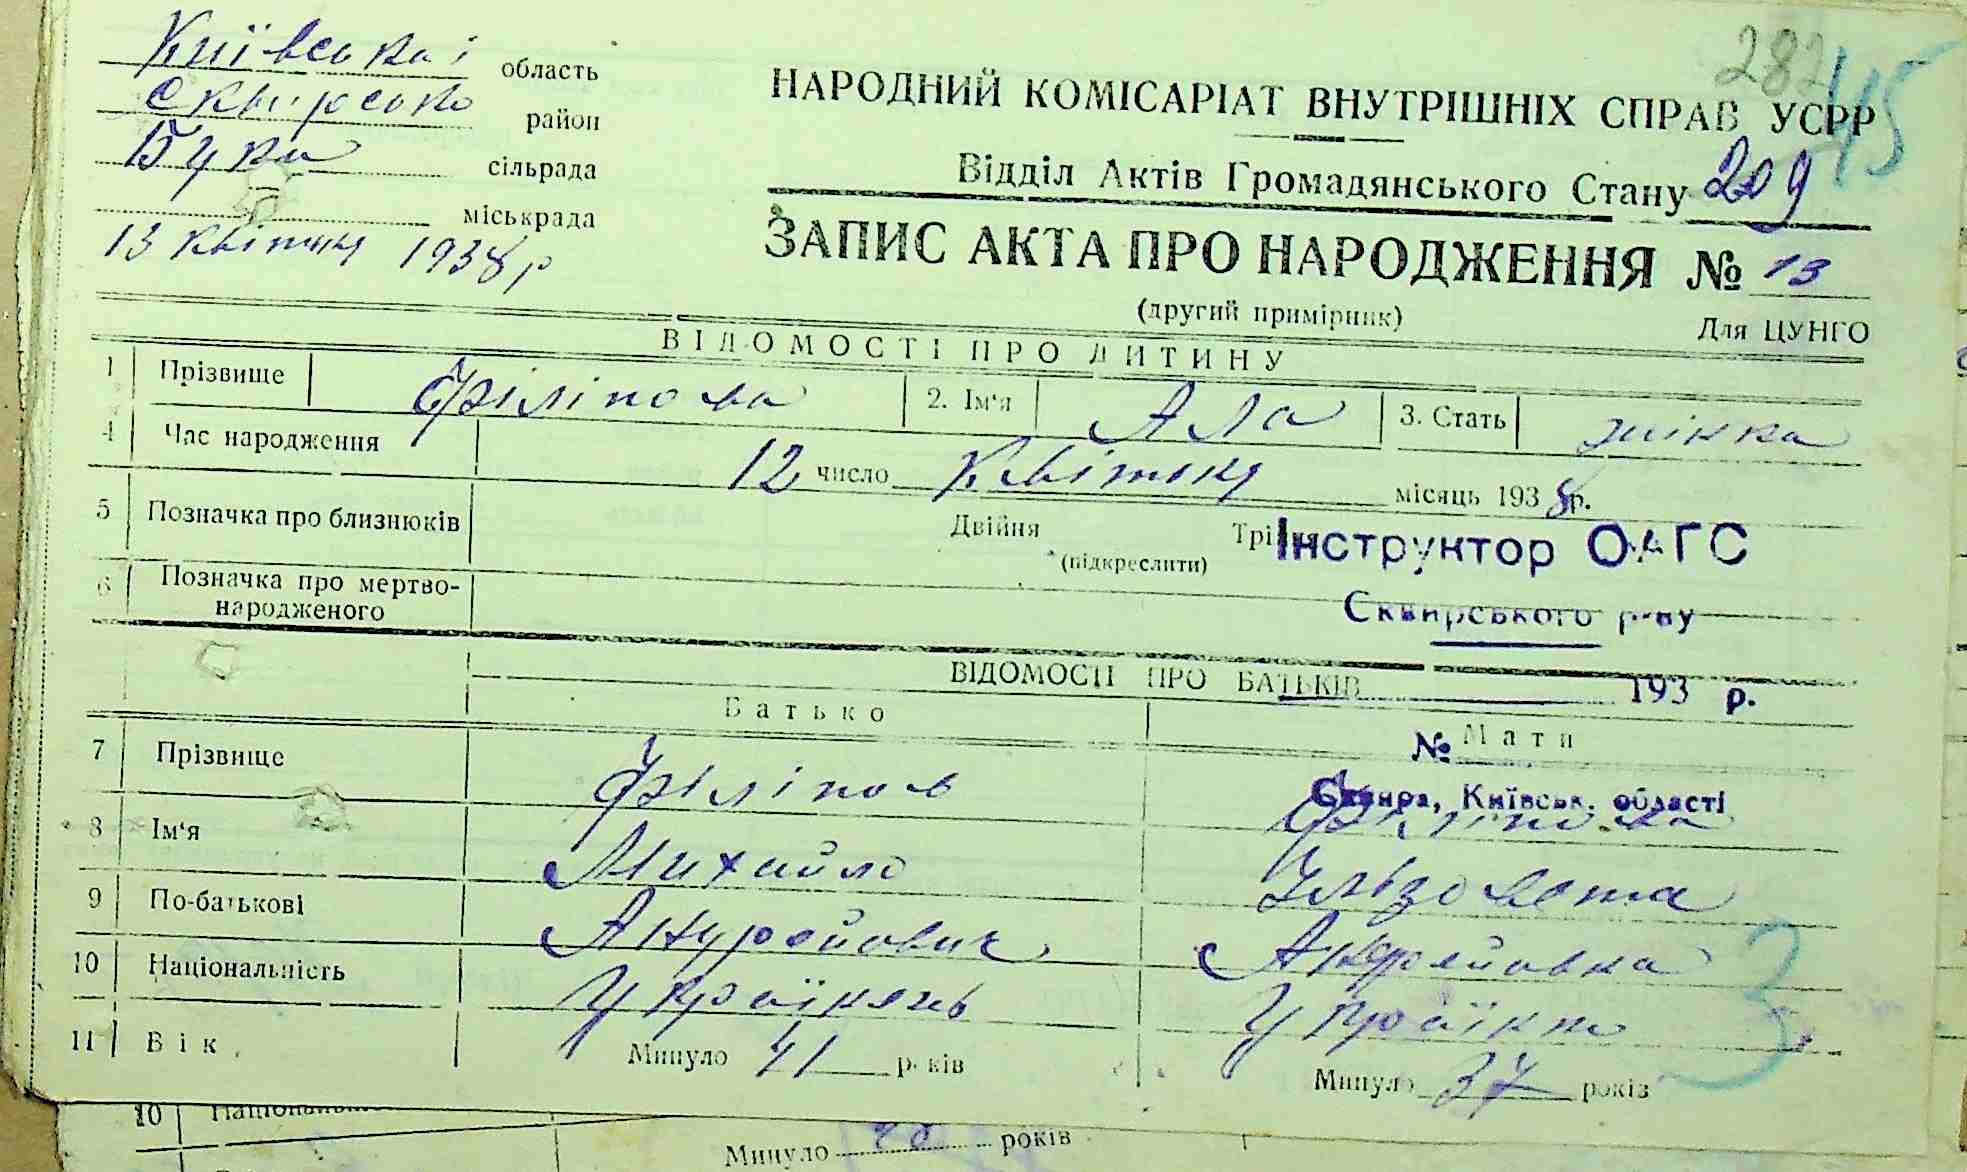 Київська область
Сквирсько район
Бука сільрада
міськрада
13 квітня 1938 р
282 45
НАРОДНИЙ КОМІСАРІАТ ВНУТРІШНІХ СПРАВ УСРР
Відділ Актів Громадянського Стану 209
ЗАПИС АКТА ПРО НАРОДЖЕННЯ № 13
(другий примірник) Для ЦУНГО
ВІДОМОСТІ ПРО ДИТИНУ
1 Прізвище Філіпова 2. Ім'я Ала 3. Стать жінка
4 Час народження 12 число Квітня місяць 1938 р.
5 Позначка про близнюків Двійня Трійня
(підкреслити)
Інструктор ОАГС
6 Позначка про мертво-
народженого
Сквирського р-ну
ВІДОМОСТІ ПРО БАТЬКІВ
193 р.
Батько Мати
№
Сквира, Київськ. області
7 Прізвище Філіпов Філіпова
8 Ім'я Михайло
9 По-батькові Андрейович Андрейовна
10 Національність Українець Українка
11 Вік Минуло 41 років Минуло 37 років
3
10 Національність
Минуло років